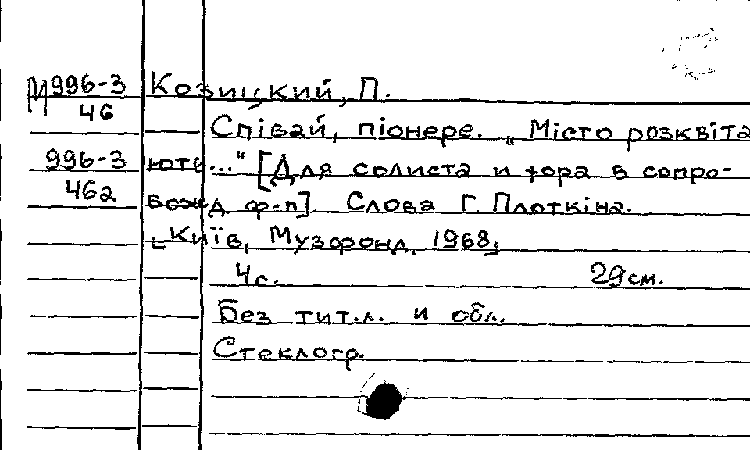 М 996-3 Козицкий, П.
46
Співай, піонере. „Місто розквіта
996-3 ють..." [Для солиста и хора в сопро-
462 вожд ф-п] Слова Г. Плоткіна.
[Київ, Музфонд, 1968]
4с. 29см.
Без тит.л. и обл.
Стеклогр.